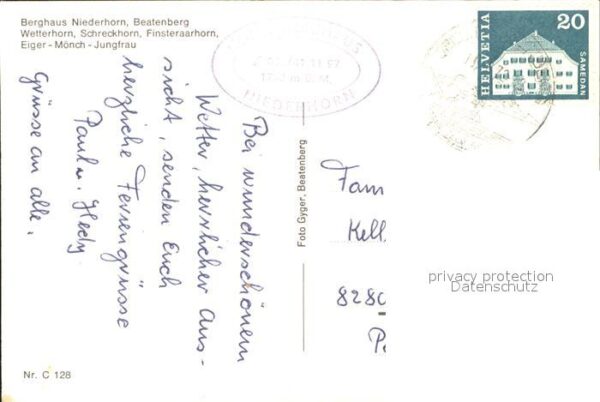 Berghaus Niederhorn, Beatenberg
Wetterhorn, Schreckhorn, Finsteraarhorn,
Eiger - Mönch - Jungfrau
NIEDERHORN
HELVETIA
20
SAMEDAN
Bei wunderschönem
Wetter, herrlicher Aus-
sicht, senden Euch
herzliche Feriengrüsse
Paul u. Hedy.
Grüsse an alle.
Foto Gyger, Beatenberg
Fam
Kell
8280
privacy protection
Datenschutz
Nr. C 128